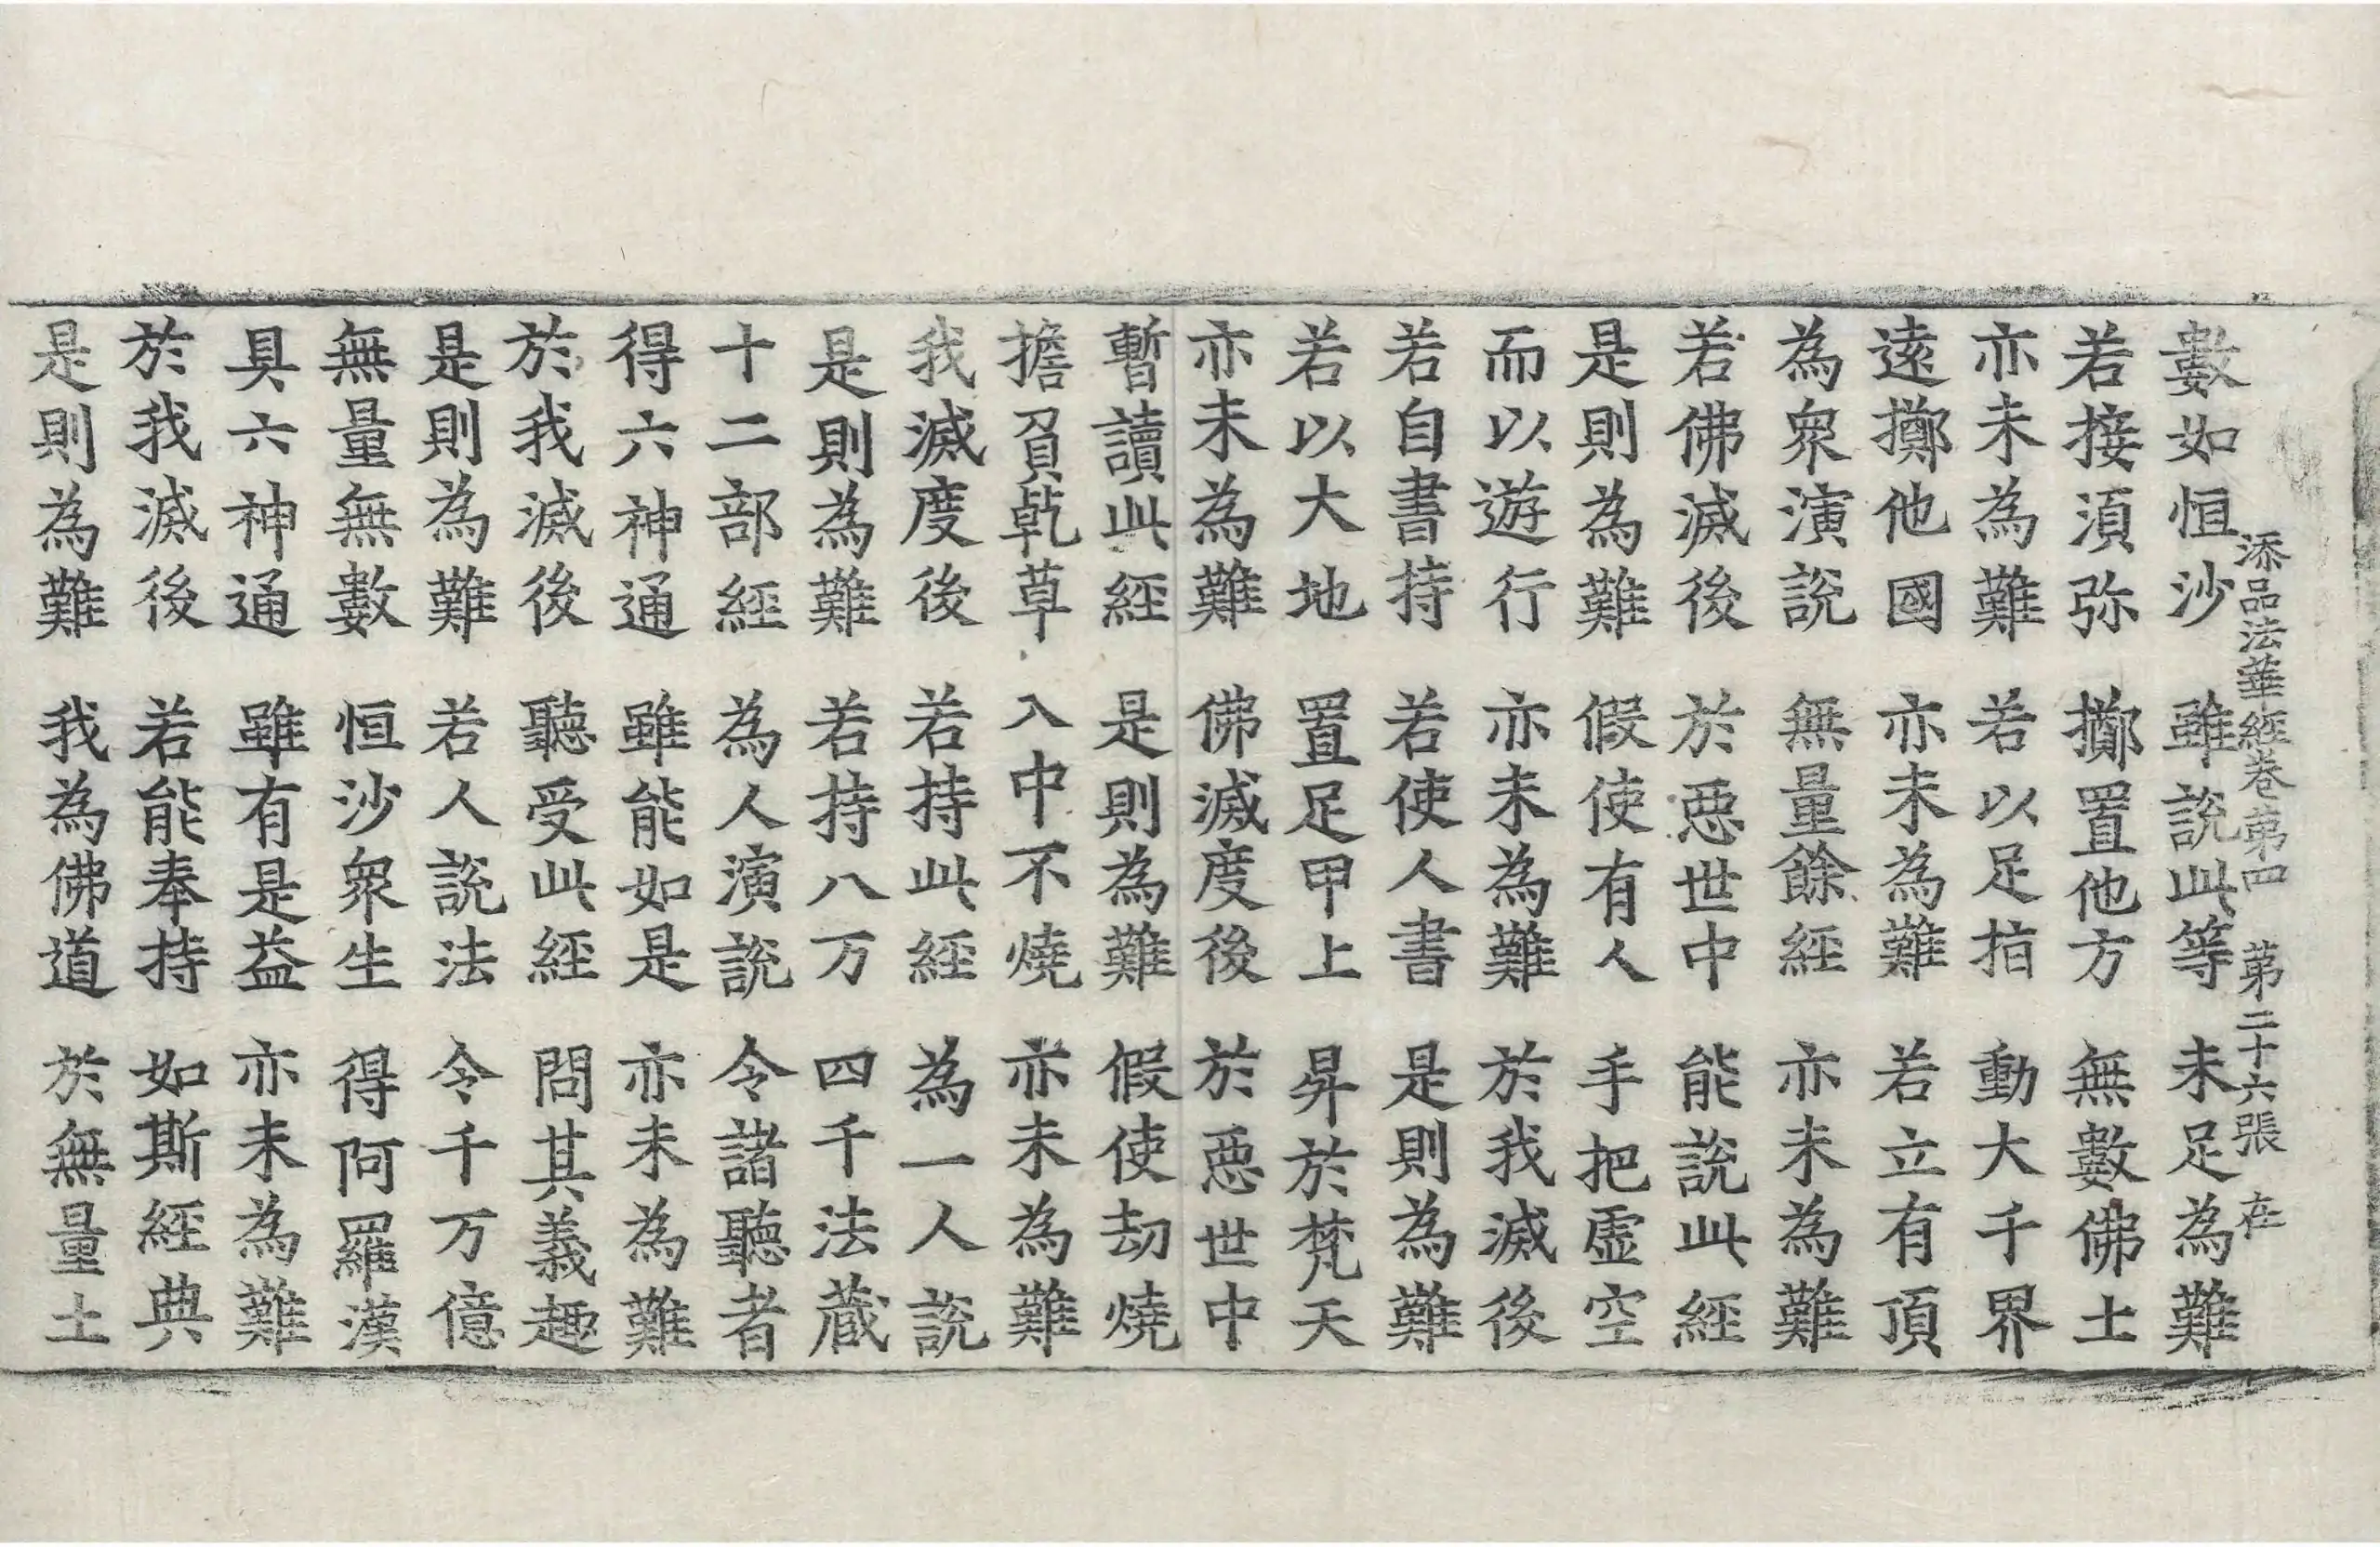 添品法華經卷第四 第二十六張 在
數如恒沙 雖說此等 未足為難
若接湏弥 擲置他方 無數佛土
亦未為難 若以足指 動大千界
遠擲他國 亦未為難 若立有頂
為衆演說 無量餘經 亦未為難
若佛滅後 於惡世中 能說此經
是則為難 假使有人 手把虛空
而以遊行 亦未為難 於我滅後
若自書持 若使人書 是則為難
若以大地 置足甲上 昇於梵天
亦未為難 佛滅度後 於惡世中
暫讀此經 是則為難 假使劫燒
擔負乾草 入中不燒 亦未為難
我滅度後 若持此經 為一人說
是則為難 若持八万 四千法蔵
十二部經 為人演說 令諸聽者
得六神通 雖能如是 亦未為難
於我滅後 聽受此經 問其義趣
是則為難 若人說法 令千万億
無量無數 恒沙衆生 得阿羅漢
具六神通 雖有是益 亦未為難
於我滅後 若能奉持 如斯經典
是則為難 我為佛道 於無量土